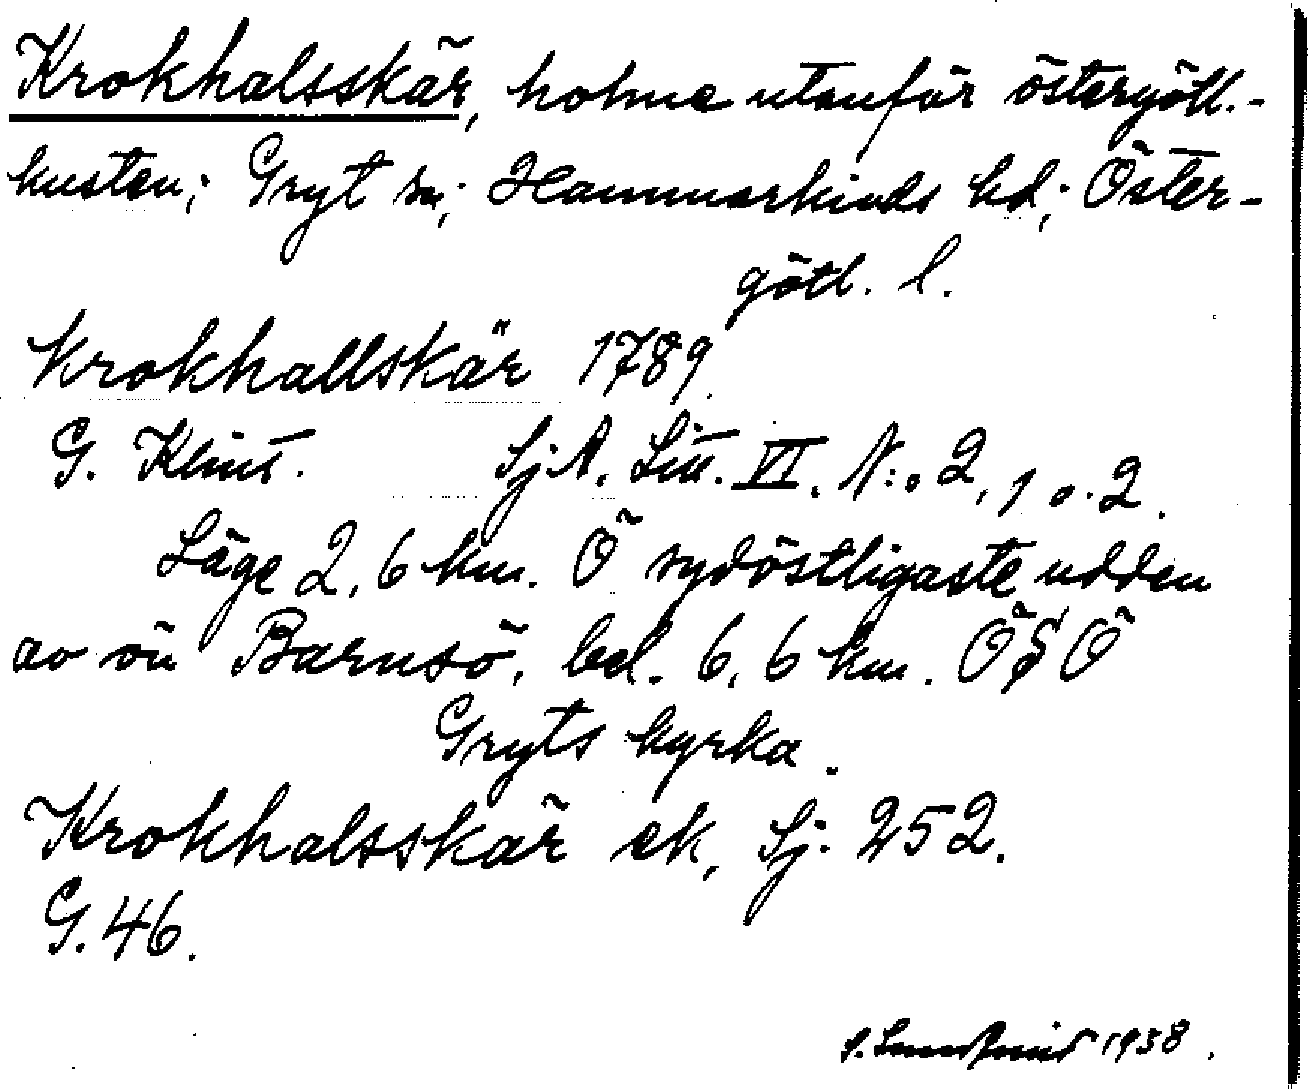 Krokhalsskär, holme utanför östergötl.-
kusten; Gryt sn; Hammarkinds hd; Öster-
götl. l.
Krokhallskär 1789
G. Klint. SjA. Litt. VI. N:o 2, 1 o. 2.
Läge 2,6 km. Ö sydöstligaste udden
av ön Barnsö, bel. 6,6 km. ÖSÖ
Gryts kyrka.
Krokhalsskär ek, Sj. 252.
G. 46.
1938.